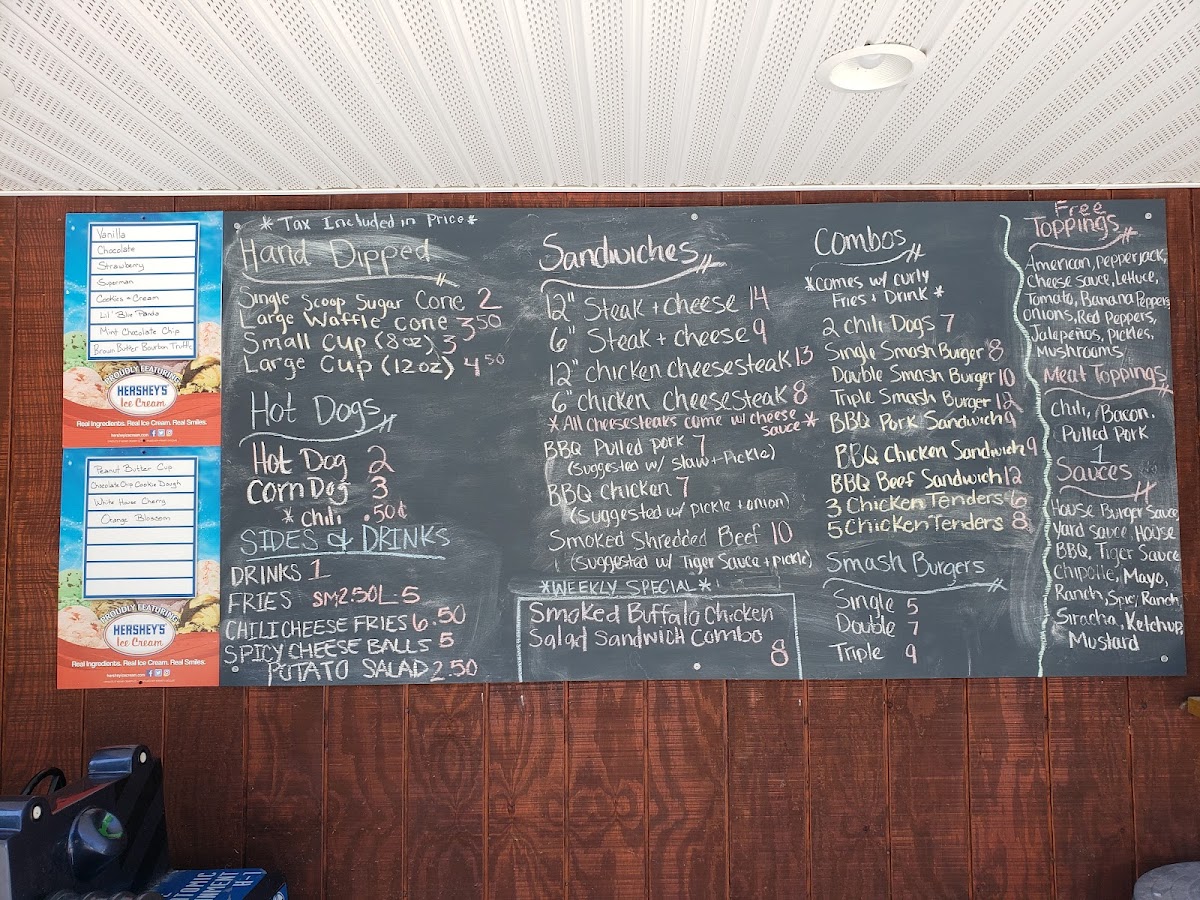 Vanilla
Chocolate
Strawberry
Superman
Cookies + Cream
Lil' Blue Panda
Mint Chocolate Chip
Brown Butter Bourbon Truffle
PROUDLY FEATURING
HERSHEY'S
Ice Cream
Real Ingredients. Real Ice Cream. Real Smiles.
hersheyicecream.com
Peanut Butter Cup
Chocolate Chip Cookie Dough
White House Cherry
Orange Blossom
PROUDLY FEATURING
HERSHEY'S
Ice Cream
Real Ingredients. Real Ice Cream. Real Smiles.
hersheyicecream.com
* Tax Included in Price *
Hand Dipped
Single Scoop Sugar Cone 2
Large Waffle Cone 3 50
Small Cup (8oz) 3
Large Cup (12oz) 4 50
Hot Dogs
Hot Dog 2
Corn Dog 3
* Chili .50¢
SIDES & DRINKS
DRINKS 1
FRIES SM 2.50 L 5
CHILI CHEESE FRIES 6.50
SPICY CHEESE BALLS 5
POTATO SALAD 2.50
Sandwiches
12" Steak + cheese 14
6" Steak + cheese 9
12" chicken cheesesteak 13
6" chicken cheesesteak 8
* All cheesesteaks come w/ cheese sauce *
BBQ Pulled Pork 7
(Suggested w/ slaw + Pickle)
BBQ Chicken 7
(Suggested w/ pickle + onion)
Smoked Shredded Beef 10
(Suggested w/ Tiger Sauce + pickle)
*WEEKLY SPECIAL*
Smoked Buffalo Chicken
Salad Sandwich Combo
8
Combos
*comes w/ curly
Fries + Drink *
2 Chili Dogs 7
Single Smash Burger 8
Double Smash Burger 10
Triple Smash Burger 12
BBQ Pork Sandwich 9
BBQ Chicken Sandwich 9
BBQ Beef Sandwich 12
3 Chicken Tenders 6
5 Chicken Tenders 8
Smash Burgers
Single 5
Double 7
Triple 9
Free
Toppings
American, pepperjack,
Cheese sauce, Lettuce,
Tomato, Banana Peppers
onions, Red Peppers,
Jalepeños, Pickles,
Mushrooms
Meat Toppings
Chili, Bacon,
Pulled Pork
1
Sauces
House Burger Sauce,
Yard sauce, House
BBQ, Tiger Sauce
Chipotle, Mayo,
Ranch, Spicy Ranch,
Siracha, Ketchup,
Mustard